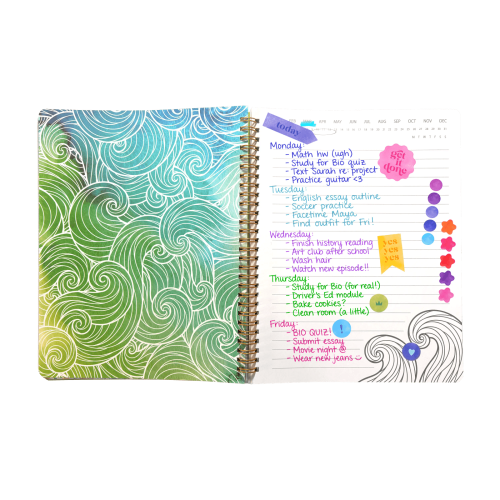 today
JUN JUL AUG SEP OCT NOV DEC
Monday:
- Math hw (ugh)
- Study for Bio quiz
- Text Sarah re: project
- Practice guitar <3
get it done
Tuesday
- English essay outline
- Soccer practice
- Facetime Maya
- Find outfit for Fri!
Wednesday:
- Finish history reading
- Art club after school
- Wash hair
- Watch new episode!!
yes
yes
yes
Thursday:
- Study for Bio (for real!)
- Driver's Ed module
- Bake cookies?
- Clean room (a little)
Friday:
- BIO QUIZ!
- Submit essay
- Movie night @
- Wear new jeans
!